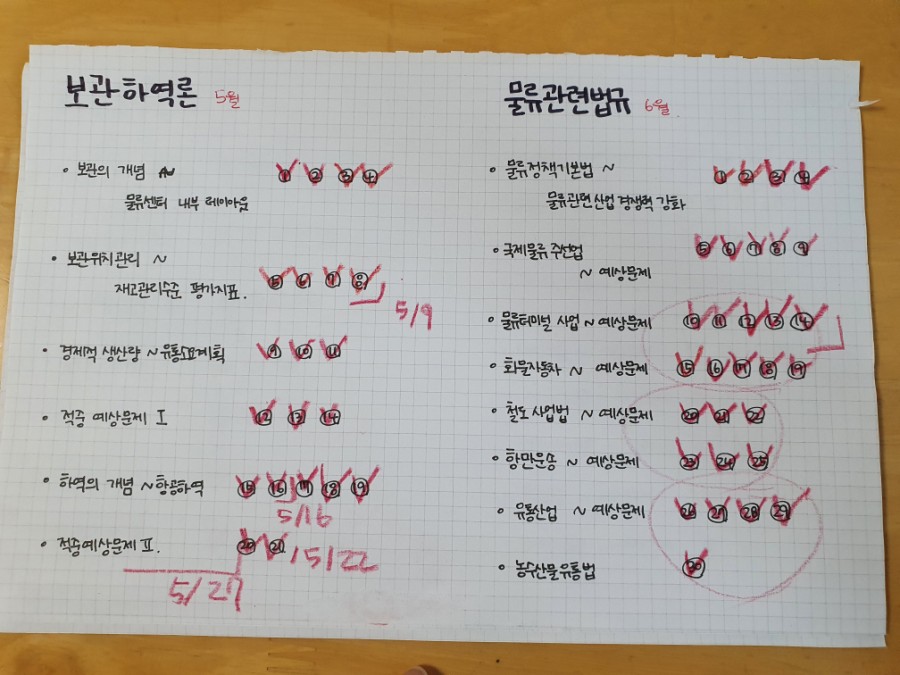 보관하역론 5월
• 보관의 개념 ~ ① ② ③ ④
물류센터 내부 레이아웃
• 보관위치관리 ~
재고관리수준 평가지표. ⑤ ⑥ ⑦ ⑧
5/9
• 경제적 생산량 ~ 유통소요계획 ⑨ ⑩ ⑪
• 적중 예상문제 I ⑫ ⑬ ⑭
• 하역의 개념 ~ 항공하역 ⑮ ⑯ ⑰ ⑱ ⑲
5/16
• 적중예상문제 II. ⑳ ㉑ 5/22
5/27
물류관련법규 6월
• 물류정책기본법 ~ ① ② ③ ④
물류관련산업 경쟁력 강화
• 국제물류 주선업 ⑤ ⑥ ⑦ ⑧ ⑨
~ 예상문제
• 물류터미널 사업 ~ 예상문제 ⑩ ⑪ ⑫ ⑬ ⑭
• 화물자동차 ~ 예상문제 ⑮ ⑯ ⑰ ⑱ ⑲
• 철도 사업법 ~ 예상문제 ⑳ ㉑ ㉒
• 항만운송 ~ 예상문제 ㉓ ㉔ ㉕
• 유통산업 ~ 예상문제 ㉖ ㉗ ㉘ ㉙
• 농수산물유통법 ㉚